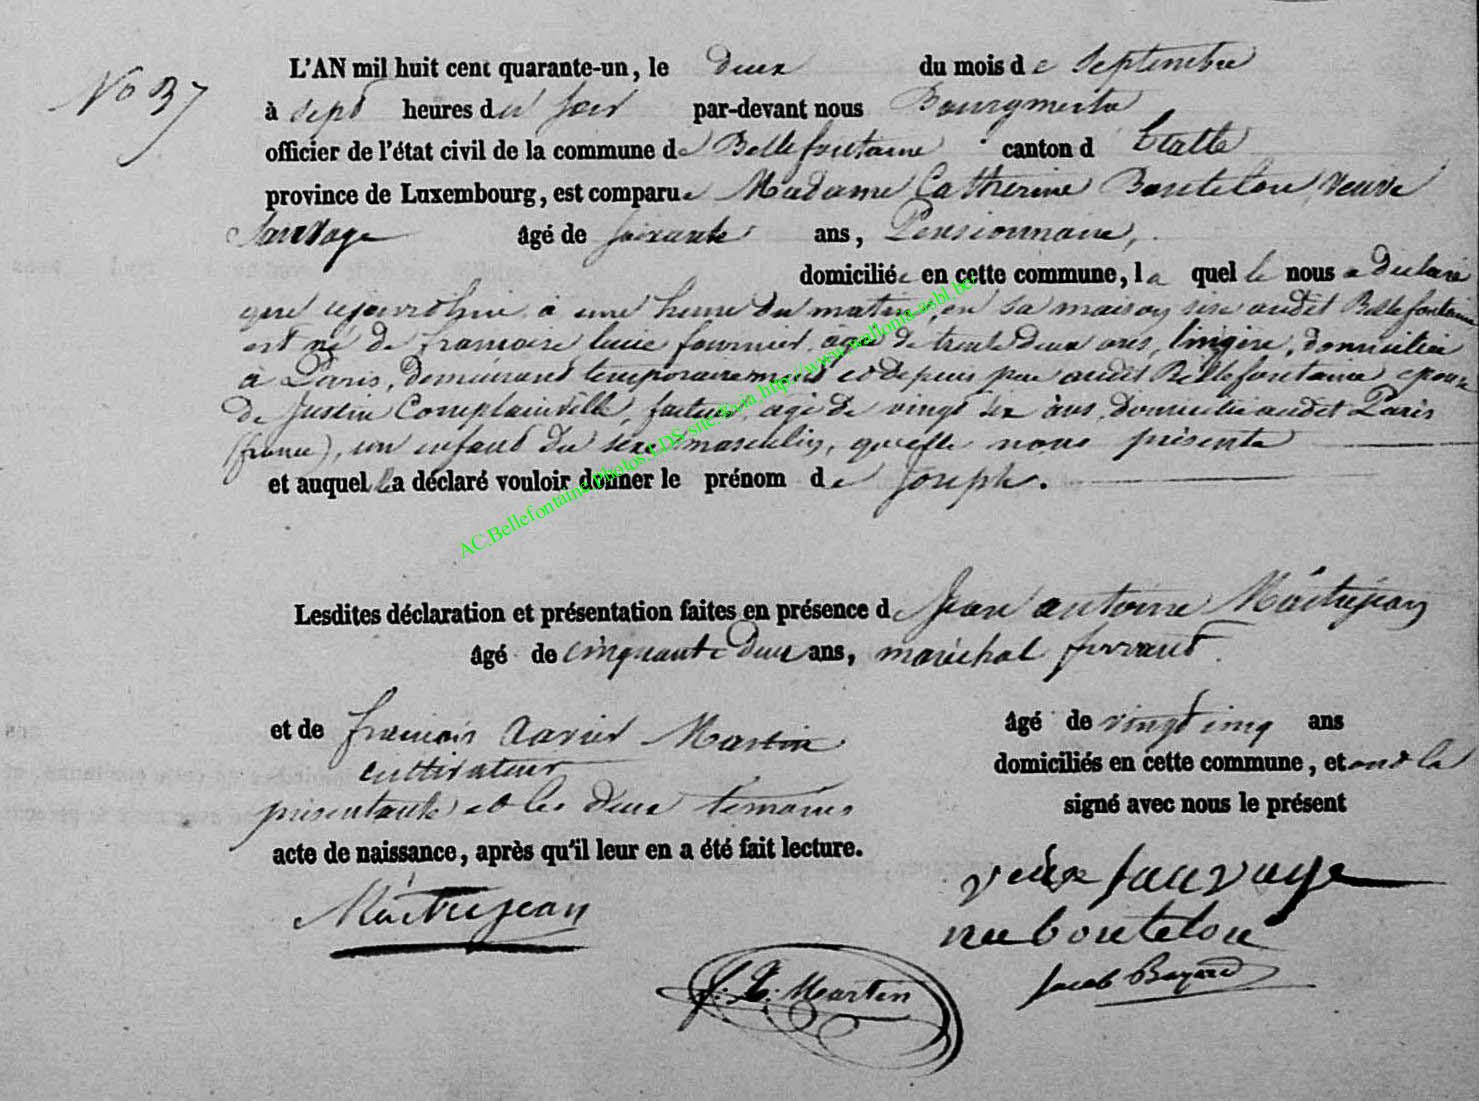 No 37
L'AN mil huit cent quarante-un, le deux du mois de Septembre
à sept heures du soir par-devant nous Bourgmestre
officier de l'état civil de la commune de Bellefontaine canton d'Etalle
province de Luxembourg, est comparue Madame Catherine Boutelou veuve
Sauvage âgé de soixante ans, Pensionnaire,
domiciliée en cette commune, la quelle nous a déclaré
que aujourd'hui à une heure du matin, en sa maison sise audit Bellefontaine
est né de francoise lucie fournier, agée de trente deux ans, lingère, domiciliée
à Paris, demeurant temporairement et depuis peu audit Bellefontaine épouse
de Justin Complainville, facteur, agé de vingt six ans, domicilié audit Paris
(france), un enfant du sexe masculin, qu'elle nous présente
et auquel elle a déclaré vouloir donner le prénom de Joseph.
Lesdites déclaration et présentation faites en présence de Jean antoine Maitrejean
âgé de cinquante deux ans, maréchal ferrant.
et de francois Xavier Martin âgé de vingt cinq ans
cultivateur domiciliés en cette commune, et ont la
présentante et les deux témoins signé avec nous le présent
acte de naissance, après qu'il leur en a été fait lecture.
Maitrejean
veuve Sauvage
née boutelou
f. X. Martin
Jacob Bayard
AC.Bellefontaine.Photos.LDS site:Evia,http://www.wallonia-asbl.be/